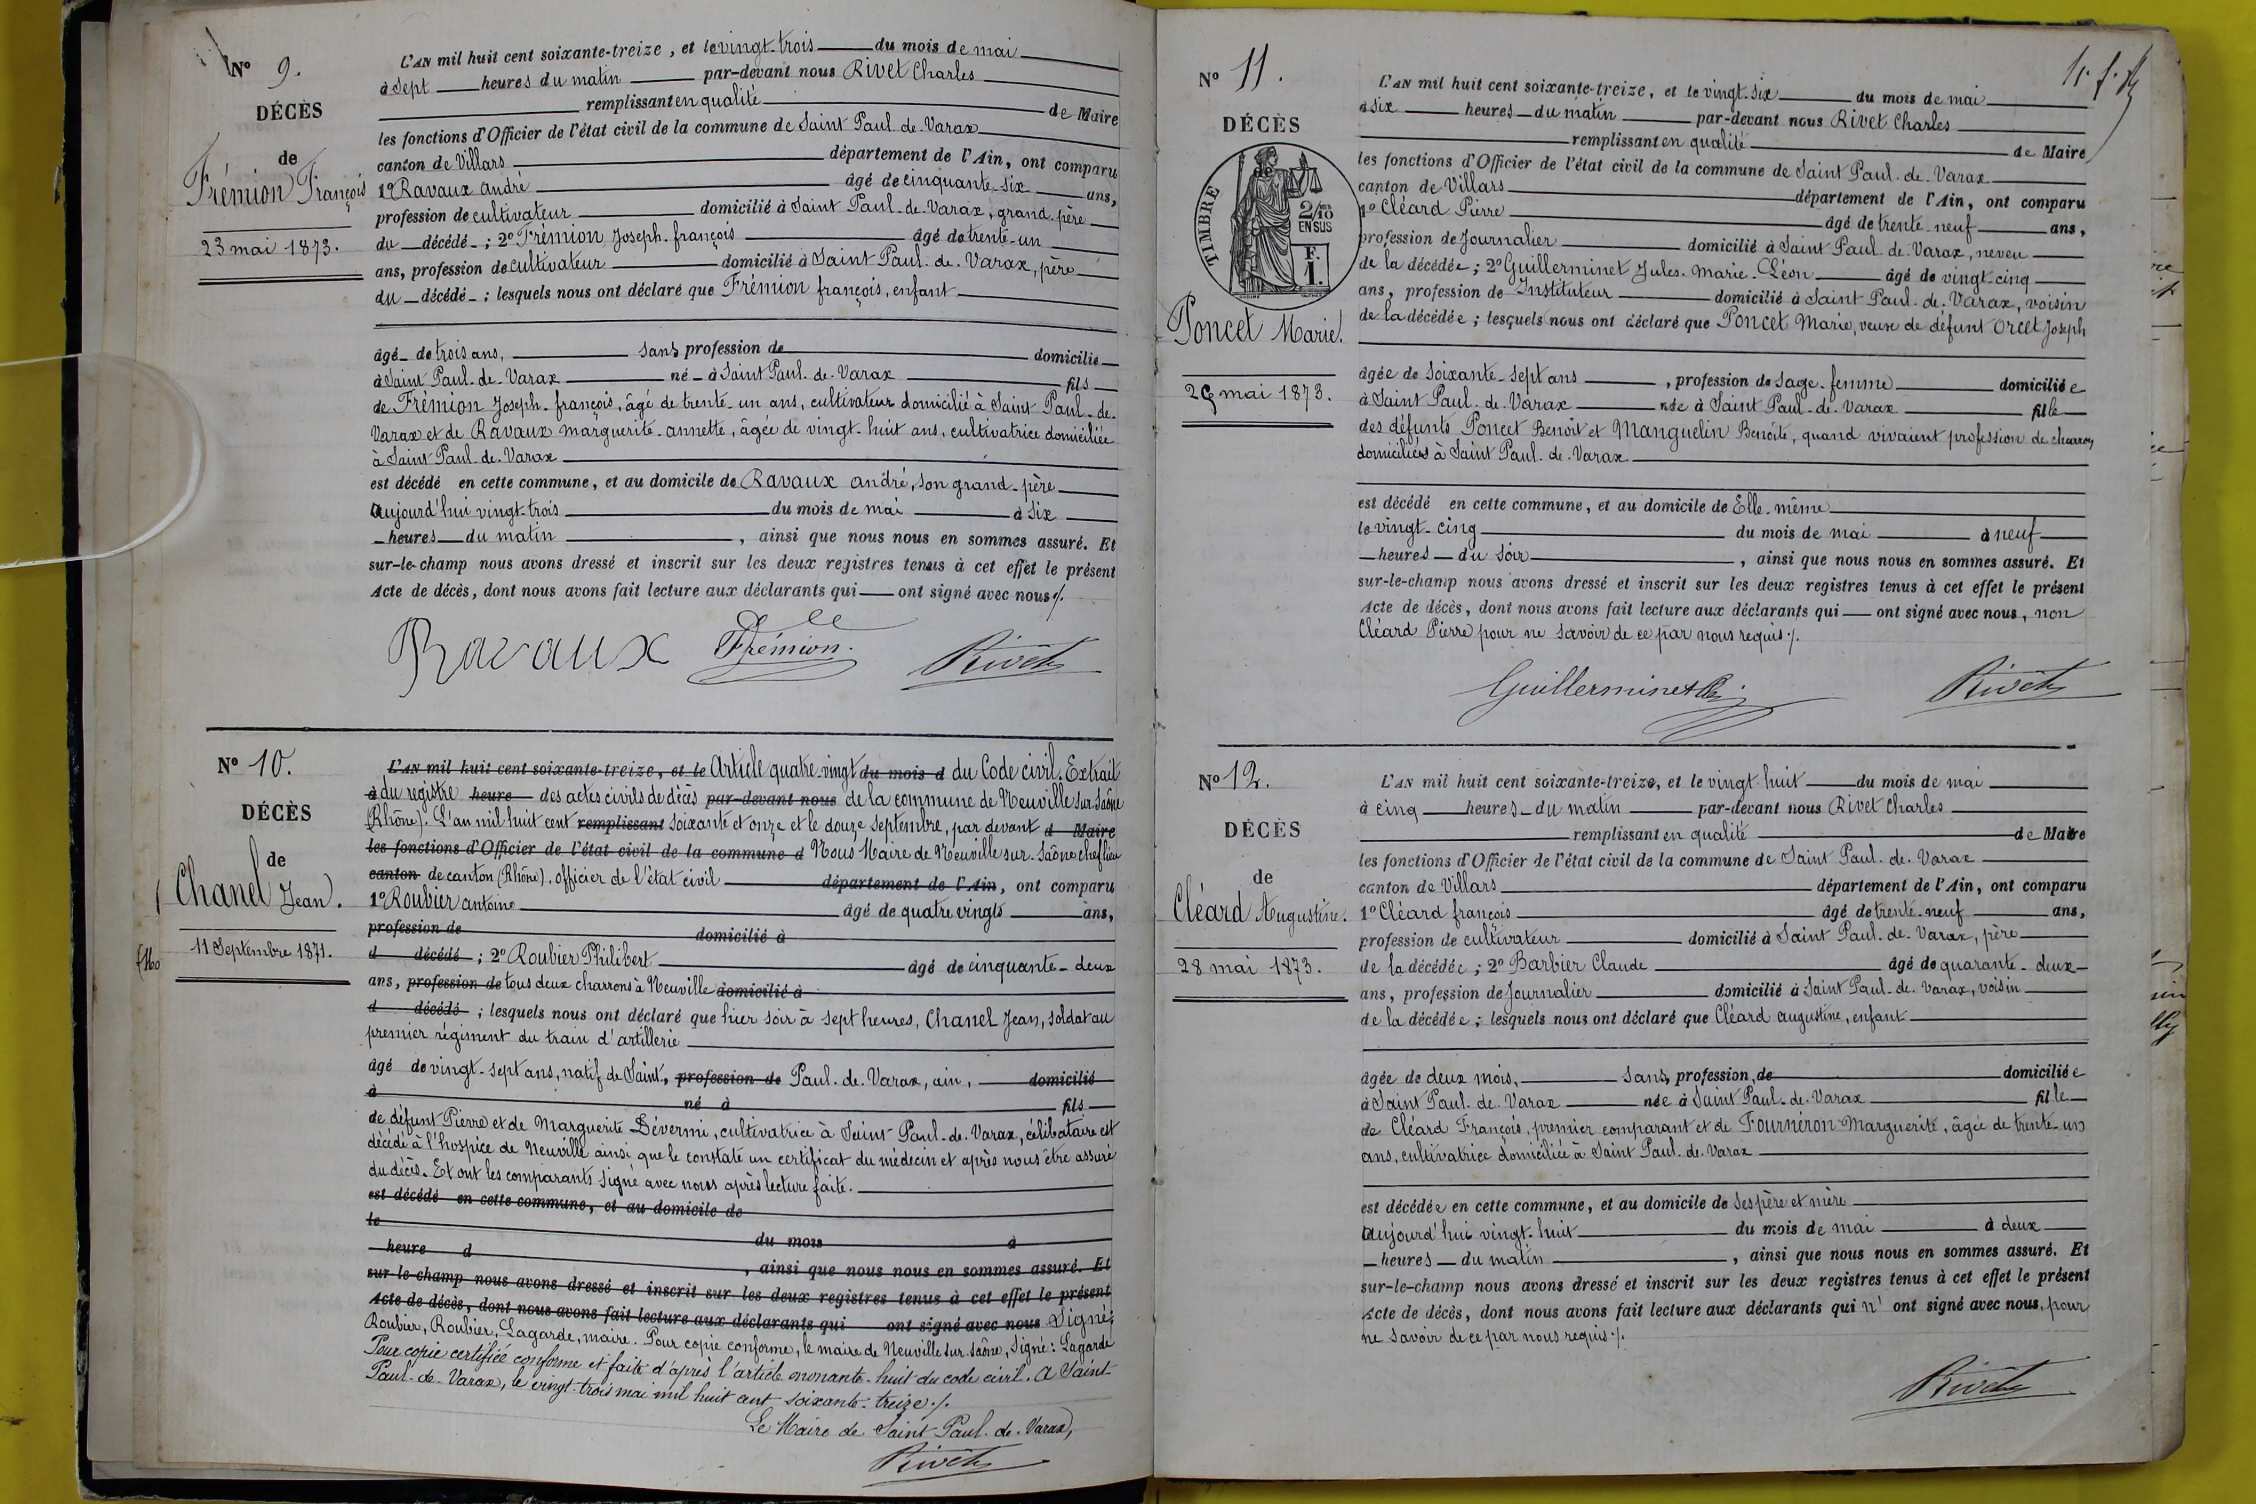 No 9.
DÉCÈS
de
Frémion François
23 mai 1873.
L'AN mil huit cent soixante-treize, et le vingt-trois du mois de mai
à sept heures du matin par-devant nous Rivet Charles
remplissant en qualité de Maire
les fonctions d'Officier de l'état civil de la commune de Saint Paul-de-Varax
canton de Villars département de l'Ain, ont comparu
1º Ravaux andré âgé de cinquante-six ans,
profession de cultivateur domicilié à Saint Paul-de-Varax, grand-père
du décédé ; 2º Frémion Joseph-françois âgé de trente-un
ans, profession de cultivateur domicilié à Saint Paul-de-Varax, père
du décédé ; lesquels nous ont déclaré que Frémion françois, enfant
âgé de trois ans, sans profession de domicilié
à Saint Paul-de-Varax né à Saint Paul-de-Varax fils
de Frémion Joseph-françois, âgé de trente-un ans, cultivateur domicilié à Saint Paul-de-
Varax et de Ravaux marguerite-annette, âgée de vingt-huit ans, cultivatrice domiciliée
à Saint Paul-de-Varax
est décédé en cette commune, et au domicile de Ravaux andré, son grand-père
aujourd'hui vingt-trois du mois de mai à six
heures du matin , ainsi que nous nous en sommes assuré. Et
sur-le-champ nous avons dressé et inscrit sur les deux registres tenus à cet effet le présent
Acte de décès, dont nous avons fait lecture aux déclarants qui ont signé avec nous ./.
Ravaux Frémion Rivet
No 10.
DÉCÈS
de
Chanel Jean.
11 Septembre 1871.
L'AN mil huit cent soixante-treize, et le Article quatre-vingt du mois d du Code civil. Extrait
à du registre heure des actes civils de décès par-devant nous de la commune de Neuville sur Saône
(Rhône). L'an mil huit cent remplissant soixante et onze et le douze septembre, par devant d Maire
les fonctions d'Officier de l'état civil de la commune d Nous Maire de Neuville sur-Saône chef lieu
canton de canton (Rhône), officier de l'état civil département de l'Ain, ont comparu
1º Roubier antoine âgé de quatre vingts ans,
profession de domicilié à
d décédé ; 2º Roubier Philibert âgé de cinquante-deux
ans, profession de tous deux charrons à Neuville domicilié à
d décédé ; lesquels nous ont déclaré que hier soir à sept heures, Chanel Jean, soldat au
premier régiment du train d'artillerie
âgé de vingt-sept ans, natif de Saint, profession de Paul-de-Varax, ain, domicilié
à né à fils
de défunt Pierre et de Marguerite Dévermi, cultivatrice à Saint-Paul-de-Varax, célibataire est
décédé à l'hospice de Neuville ainsi que le constate un certificat du médecin et après nous être assuré
du décès. Et ont les comparants signé avec nous après lecture faite.
est décédé en cette commune, et au domicile de
le du mois à
heure d , ainsi que nous nous en sommes assuré. Et
sur-le-champ nous avons dressé et inscrit sur les deux registres tenus à cet effet le présent
Acte de décès, dont nous avons fait lecture aux déclarants qui ont signé avec nous Signé:
Roubier, Roubier, Lagarde, maire. Pour copie conforme, le maire de Neuville sur-Saône, Signé: Lagarde
Pour copie certifiée conforme et faite d'après l'article nonante-huit du code civil. A Saint-
Paul-de-Varax, le vingt-trois mai mil huit cent-soixante-treize ./.
Le Maire de Saint-Paul-de-Varax,
Rivet
No 11.
DÉCÈS
de
TIMBRE
2/10
EN SUS
F.
1.
Poncet Marie.
25 mai 1873.
L'AN mil huit cent soixante-treize, et le vingt-six du mois de mai
à six heures du matin par-devant nous Rivet Charles
remplissant en qualité de Maire
les fonctions d'Officier de l'état civil de la commune de Saint Paul-de-Varax
canton de Villars département de l'Ain, ont comparu
1º Cléard Pierre âgé de trente-neuf ans,
profession de Journalier domicilié à Saint Paul-de-Varax, neveu
de la décédée ; 2º Guillerminet Jules-Marie-Léon âgé de vingt-cinq
ans, profession de Instituteur domicilié à Saint Paul-de-Varax, voisin
de la décédée ; lesquels nous ont déclaré que Poncet Marie, veuve de défunt Orcet Joseph
âgée de soixante-sept ans , profession de sage-femme domiciliée
à Saint Paul-de-Varax née à Saint Paul-de-Varax fille
des défunts Poncet Benoît et Manguelin Benoite, quand vivaient profession de charron
domiciliés à Saint Paul-de-Varax
est décédé en cette commune, et au domicile de Elle-même
le vingt-cinq du mois de mai à neuf
heures du soir , ainsi que nous nous en sommes assuré. Et
sur-le-champ nous avons dressé et inscrit sur les deux registres tenus à cet effet le présent
Acte de décès, dont nous avons fait lecture aux déclarants qui ont signé avec nous, non
Cléard Pierre pour ne savoir de ce par nous requis ./.
Guillerminet Rivet
No 12.
DÉCÈS
de
Cléard Augustine.
28 mai 1873.
L'AN mil huit cent soixante-treize, et le vingt-huit du mois de mai
à cinq heures du matin par-devant nous Rivet Charles
remplissant en qualité de Maire
les fonctions d'Officier de l'état civil de la commune de Saint Paul-de-Varax
canton de Villars département de l'Ain, ont comparu
1º Cléard françois âgé de trente-neuf ans,
profession de cultivateur domicilié à Saint Paul-de-Varax, père
de la décédée ; 2º Barbier Claude âgé de quarante-deux
ans, profession de Journalier domicilié à Saint Paul-de-Varax, voisin
de la décédée ; lesquels nous ont déclaré que Cléard augustine, enfant
âgée de deux mois, sans profession de domiciliée
à Saint Paul-de-Varax née à Saint Paul-de-Varax fille
de Cléard François, premier comparant et de Fournéron Marguerite, âgée de trente-un
ans, cultivatrice domiciliée à Saint Paul-de-Varax
est décédée en cette commune, et au domicile de ses père et mère
aujourd'hui vingt-huit du mois de mai à deux
heures du matin , ainsi que nous nous en sommes assuré. Et
sur-le-champ nous avons dressé et inscrit sur les deux registres tenus à cet effet le présent
Acte de décès, dont nous avons fait lecture aux déclarants qui n'ont signé avec nous, pour
ne savoir de ce par nous requis ./.
Rivet